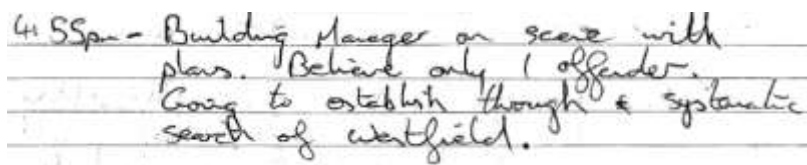 4:55pm - Building Manager on scene with
plans. Believe only 1 offender.
Going to establish through & systematic
search of westfield.